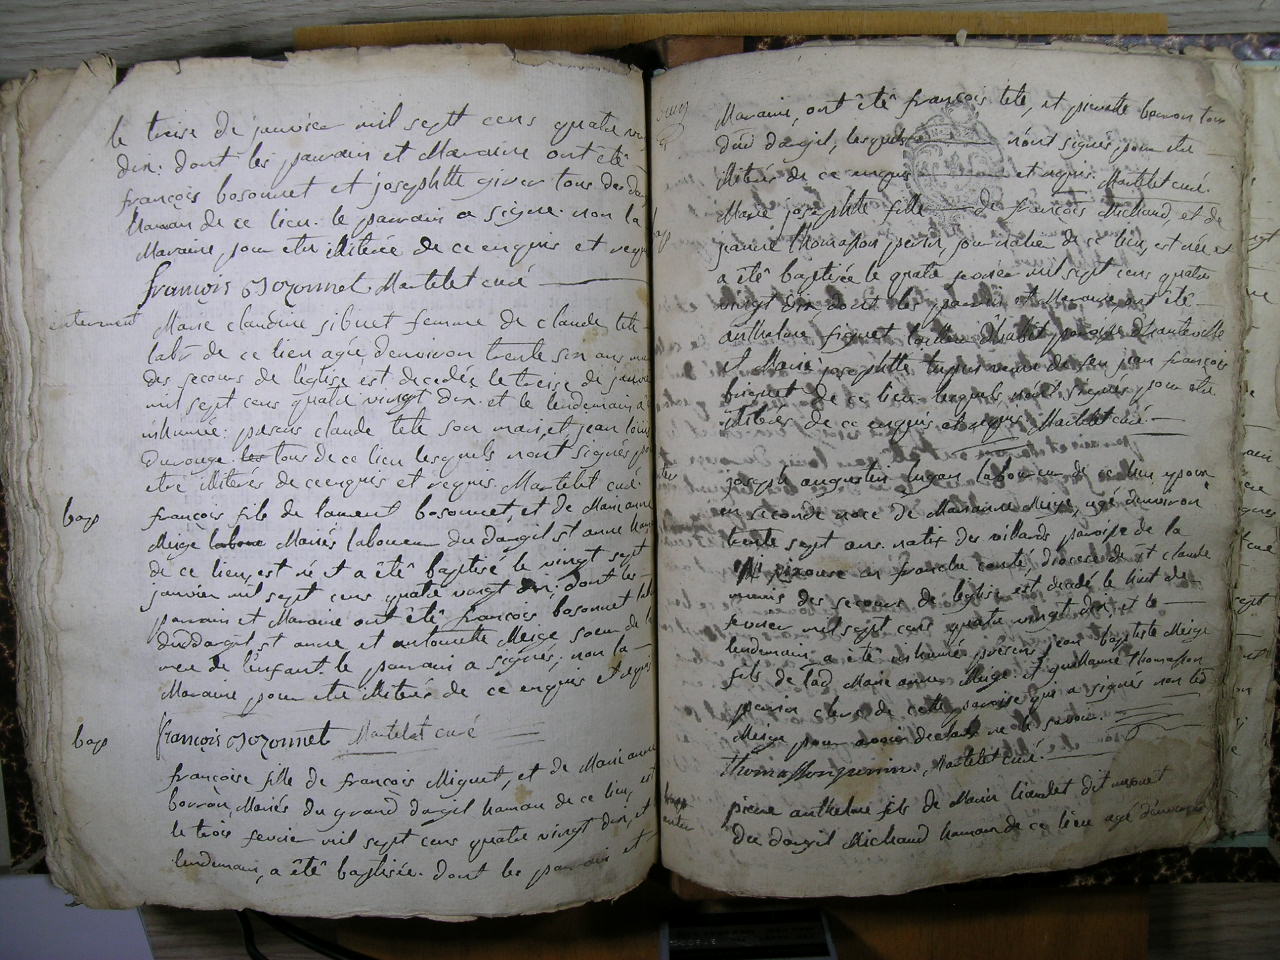 le treise de janvier mil sept cens quatre vin
dix: dont les parrain et Marraine ont été
françois bosonnet et josephtte giver tous deux du
hamau de ce lieu. le parrain a signé. non la
Marraine pour etre illiterée de ce enquis et requis
françois Bozonnet Martelet curé
enterrement Marie claudine sibuet femme de claude tete
labr de ce lieu agée denviron trente six ans mu
des secours de l'eglise est decedée le treise de janvier
mil sept cens quatre vingt dix et le lendemain a
inhumée: presens claude tete son mari, et jean louis
tous de ce lieu lesquels n'ont signés p
etre illiterés de ce enquis et requis Martelet curé
bap françois fils de laurent bosonnet, et de Marianne
Meige Mariés laboureur du dargil st anne ham
de ce lieu, est né et a été baptisé le vingt sept
janvier mil sept cens quatre vingt dix; dont les
parrain et Maraine ont été françois bosonnet lab
dud dargil st anne et antoinette Meige soeur de l
mere de l'enfant. le parrain a signés, non la
Maraine pour etre illiterée de ce enquis et requis
françois Bozonnet Martelet curé
bap
françoise fille de françois Miguet, et de Marianne
bovron, Mariés du grand dargil hamau de ce lieu, est
le trois fevrier mil sept cens quatre vingt dix, et
lendemain, a été baptisée. dont les parrain et
Maraine, ont été françois tete, et pierrette bovron tous
dud dargil, lesquels n'ont signés pour etre
illiterés de ce enquis et requis Martelet curé.
bap Marie josephtte fille de françois Michaud, et de
jeanne thomasson perrin, journalier de ce lieu, est née et
a été baptisée le quatre fevrier mil sept cens quatre
vingt dix, dont les parrain et Maraine ont été
anthelme figuet paroisse d'hauteville
et Marie josephtte veuve de feu jean françois
de ce lieu lesquels n'ont signés pour etre
illiterés de ce enquis et requis Martelet curé
joseph augustin laboureur de ce lieu epoux
en seconde noce de Marianne Meige, agé denviron
trente sept ans. natif des villards paroisse de la
en franche comté, diocese de st claude
munis des secours de l'eglise est decedé le huit de
fevrier mil sept cens quatre vingt dix, et le
lendemain a été inhumé, presens jean baptiste Meige
fils de lad Marie anne Meige. et guillaume thomasson
perrin clerc de cette paroisse qui a signés non led
Meige pour avoir declaré ne le savoir.
Thomasson perrin. Martelet curé.
enter pierre anthelme fils de Marin liaudet dit
du dargil Michaud hamau de ce lieu agé d'environ